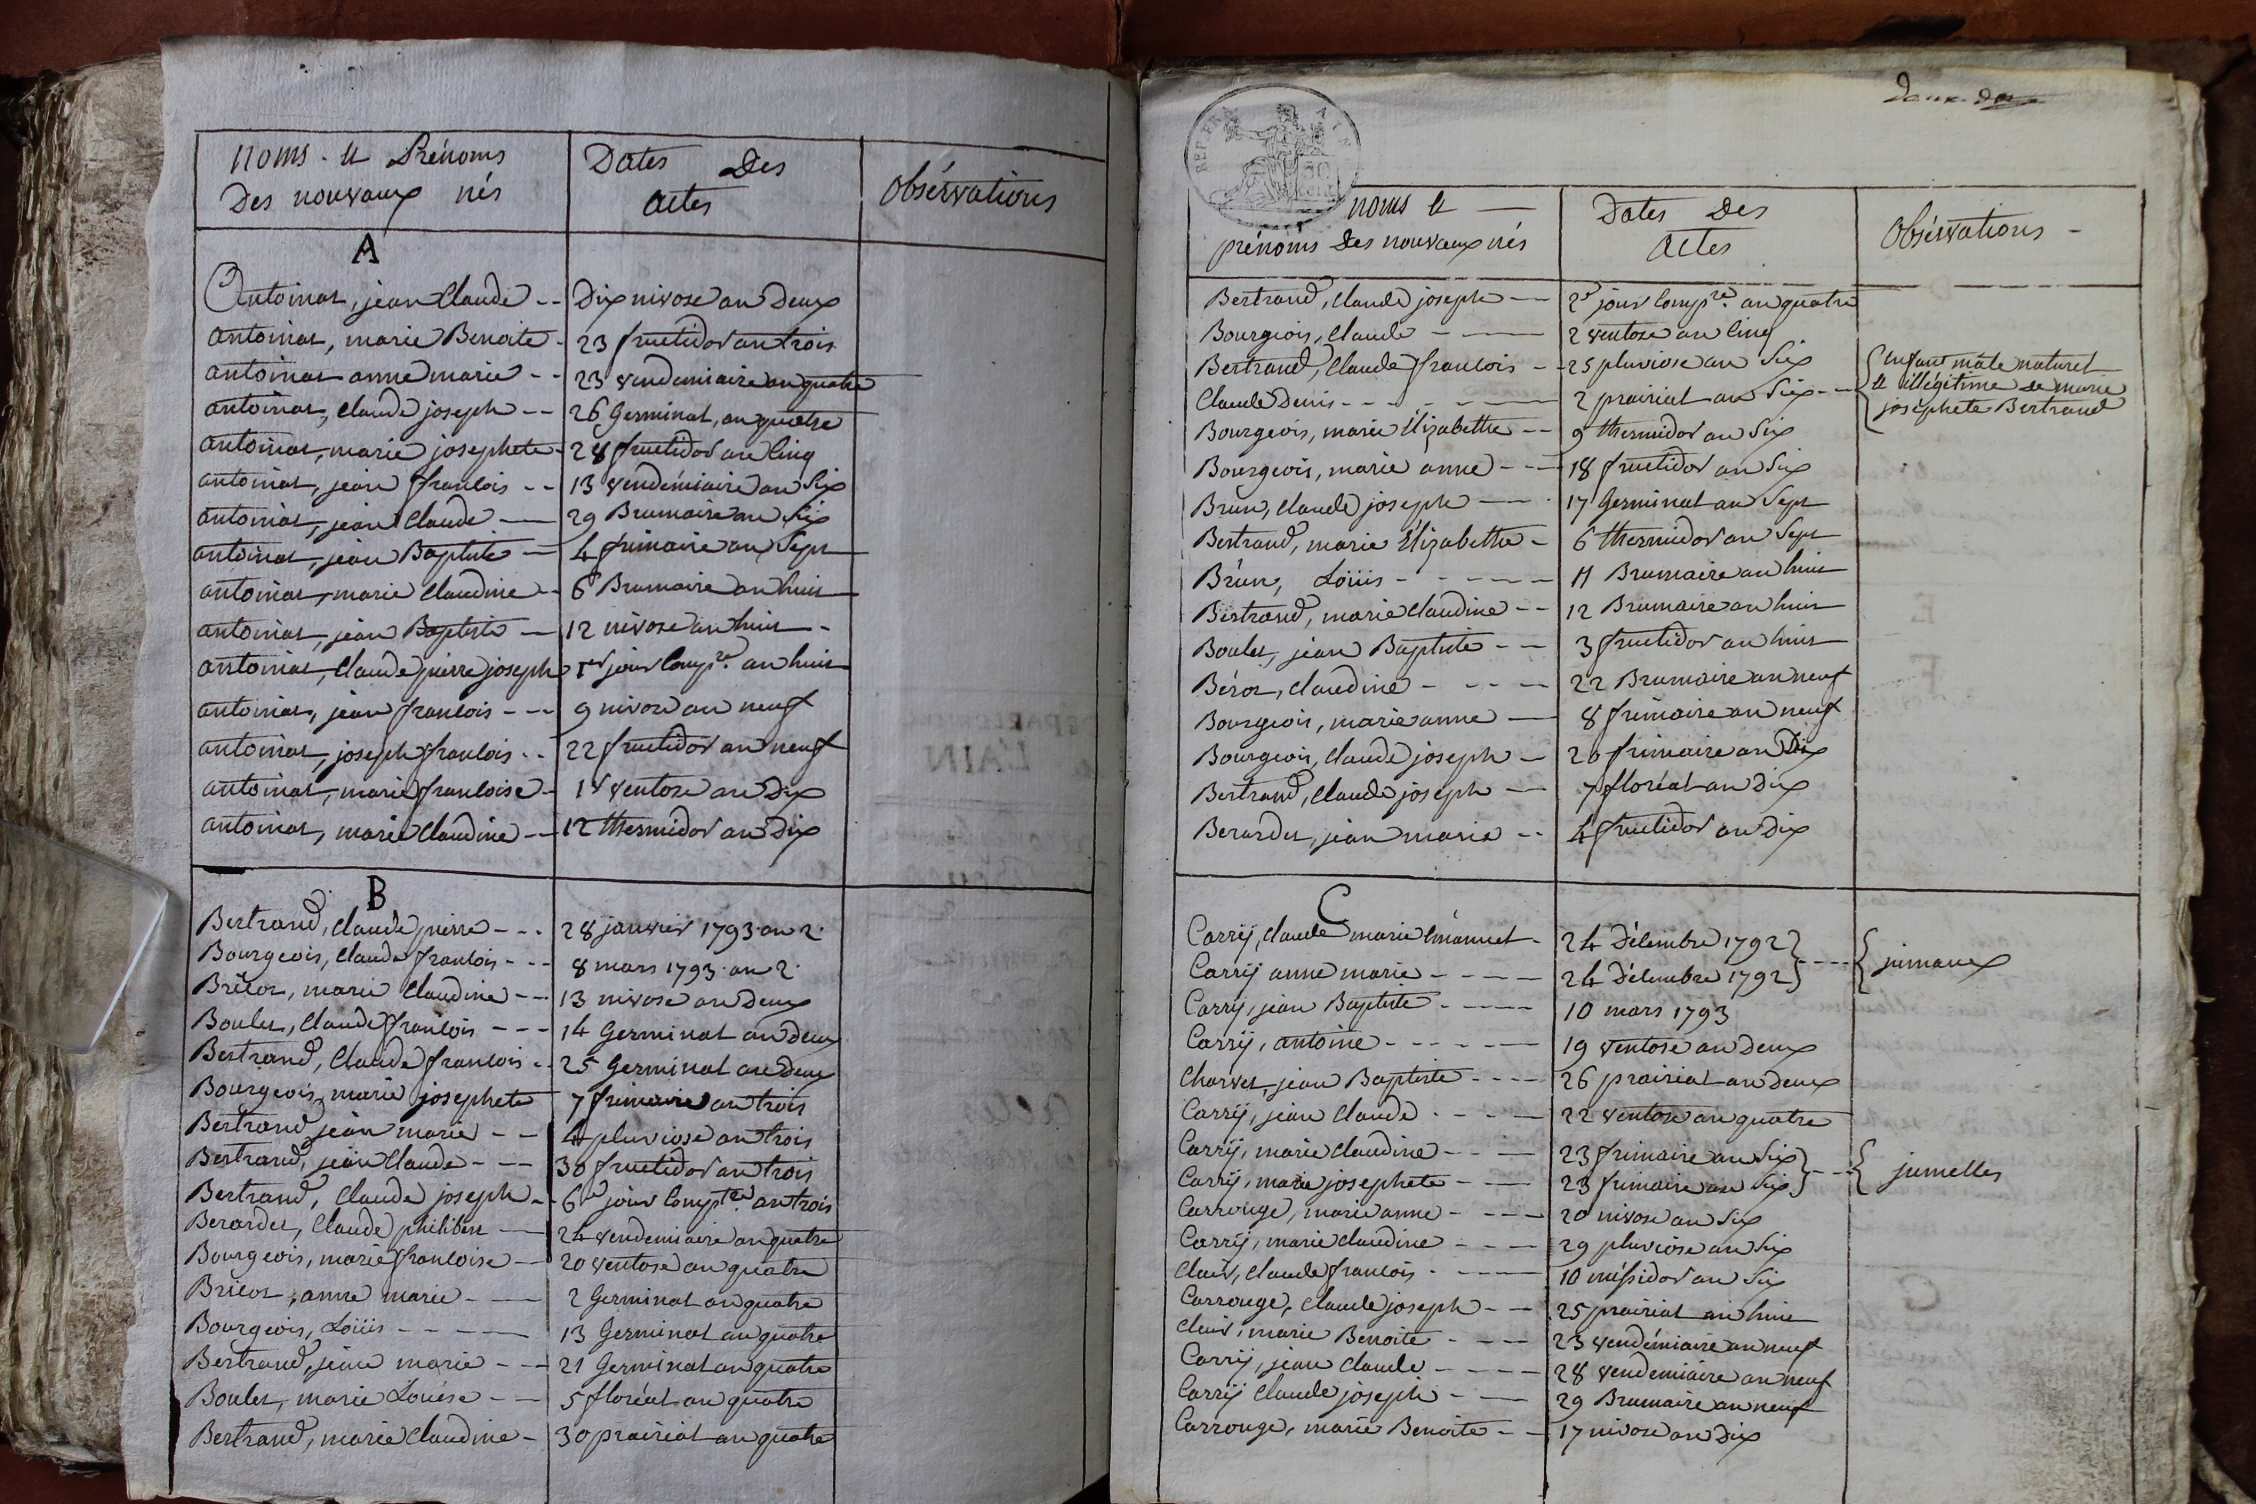 noms et Prénoms
Des nouvaux nés
Dates Des
Actes
Observations
A
Antoinat, jean Claude -- Dix nivose an Deux
antoinat, marie Benoite - 23 fructidor an trois
antoinat anne marie -- 23 vendemiaire an quatre
antoinat, Claude joseph -- 26 Germinal, an quatre
antoinat, marie josephete - 28 fructidor an Cinq
antoinat, jean francois -- 13 vendémiaire an Six
antoinat, jean Claude -- 29 Brumaire an Six
antoinat, jean Baptiste -- 4 frimaire an Sept
antoinat, marie Claudine -- 6 Brumaire an huit
antoinat, jean Baptiste -- 12 nivose an huit -
antoinat, Claude pierre joseph 1er jour Compre. an huit
antoinat, jean francois --- 9 nivose an neuf
antoinat, joseph francois -- 22 fructidor an neuf
antoinat, marie francoise - 1er ventose an Dix
antoinat, marie Claudine -- 12 thermidor an Dix
B
Bertrand, Claude pierre --- 28 janvier 1793. an 2.
Bourgeois, Claude francois --- 8 mars 1793. an 2.
Bricot, marie Claudine --- 13 nivose an Deux
Boulet, Claude francois --- 14 Germinal an Deux
Bertrand, Claude francois -- 25 Germinal an Deux
Bourgeois, marie josephete 7 frimaire an trois
Bertrand jean marie -- 4 pluviose an trois
Bertrand, jean Claude --- 30 fructidor an trois
Bertrand, Claude joseph -- 6e jour Compre. an trois
Berardet, Claude philibert -- 24 vendemiaire an quatre
Bourgeois, marie francoise -- 20 ventose an quatre
Bricot, anne marie --- 2 Germinal an quatre
Bourgeois, Loüis ----- 13 Germinal an quatre
Bertrand, jean marie --- 21 Germinal an quatre
Boulet, marie Louise -- 5 floréal an quatre
Bertrand, marie Claudine - 30 prairial an quatre
REP. FRA
50
noms et
prénoms Des nouvaux nés
Dates Des
Actes
Observations -
Bertrand, Claude joseph -- 2e jour Compre. an quatre
Bourgeois, Claude ---- 2 ventose an Cinq
Bertrand, Claude francois -- 25 pluviose an Six
Claude Denis ------ 2 prairial an Six -- { Enfant mâle naturel
et illégitime de marie
josephete Bertrand
Bourgeois, marie Élizabethe -- 9 thermidor an Six
Bourgeois, marie anne --- 18 fructidor an Six
Brun, Claude joseph --- 17 Germinal an Sept
Bertrand, marie Élizabethe - 6 thermidor an Sept
Brun, Loüis ----- 11 Brumaire an huit
Bertrand, marie Claudine -- 12 Brumaire an huit
Boulet, jean Baptiste -- 3 fructidor an huit
Bérot, Claudine ---- 22 Brumaire an neuf
Bourgeois, marie anne -- 8 frimaire an neuf
Bourgeois, Claude joseph -- 20 frimaire an Dix
Bertrand, Claude joseph -- 7 floréal an Dix
Berardet, jean marie -- 4 fructidor an Dix
C
Carrÿ, Claude marie Émanuel - 24 Décembre 1792 } ---- { jumaux
Carrÿ anne marie ----- 24 Décembre 1792 }
Carrÿ, jean Baptiste ---- 10 mars 1793
Carrÿ, antoine ------ 19 ventose an Deux
Charvet, jean Baptiste ---- 26 prairial an Deux
Carrÿ, jean Claude ---- 22 ventose an quatre
Carrÿ, marie Claudine --- 23 frimaire an Six } --- { jumelles
Carrÿ, marie josephete --- 23 frimaire an Six }
Carrouge, marie anne ---- 20 nivose an Six
Carrÿ, marie Claudine --- 29 pluviose an Six
Clair, Claude francois ---- 10 messidor an Six
Carrouge, Claude joseph -- 25 prairial an huit
Clair, marie Benoite --- 23 vendémiaire an neuf
Carrÿ, jean Claude ---- 28 vendemiaire an neuf
Carrÿ Claude joseph --- 29 Brumaire an neuf
Carrouge, marie Benoite -- 17 nivose an Dix